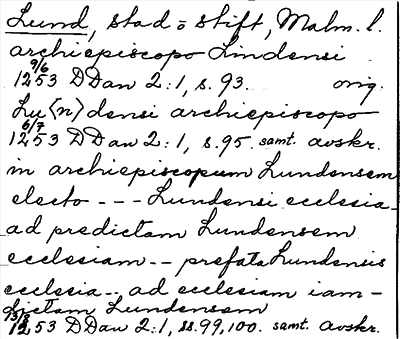 Lund, stad o stift, Malm. l.
archiepiscopo Lindensi
9/6
1253 DDan 2:1, s. 93. orig.
Lu(n)densi archiepiscopo
6/7
1253 DDan 2:1, s. 95. samt. avskr.
in archiepiscopum Lundensem
electo --- Lundensi ecclesia
ad predictam Lundensem
ecclesiam -- prefata Lundensis
ecclesia -- ad ecclesiam iam-
dictam Lundensem
1253 DDan 2:1, ss. 99, 100. samt. avskr.